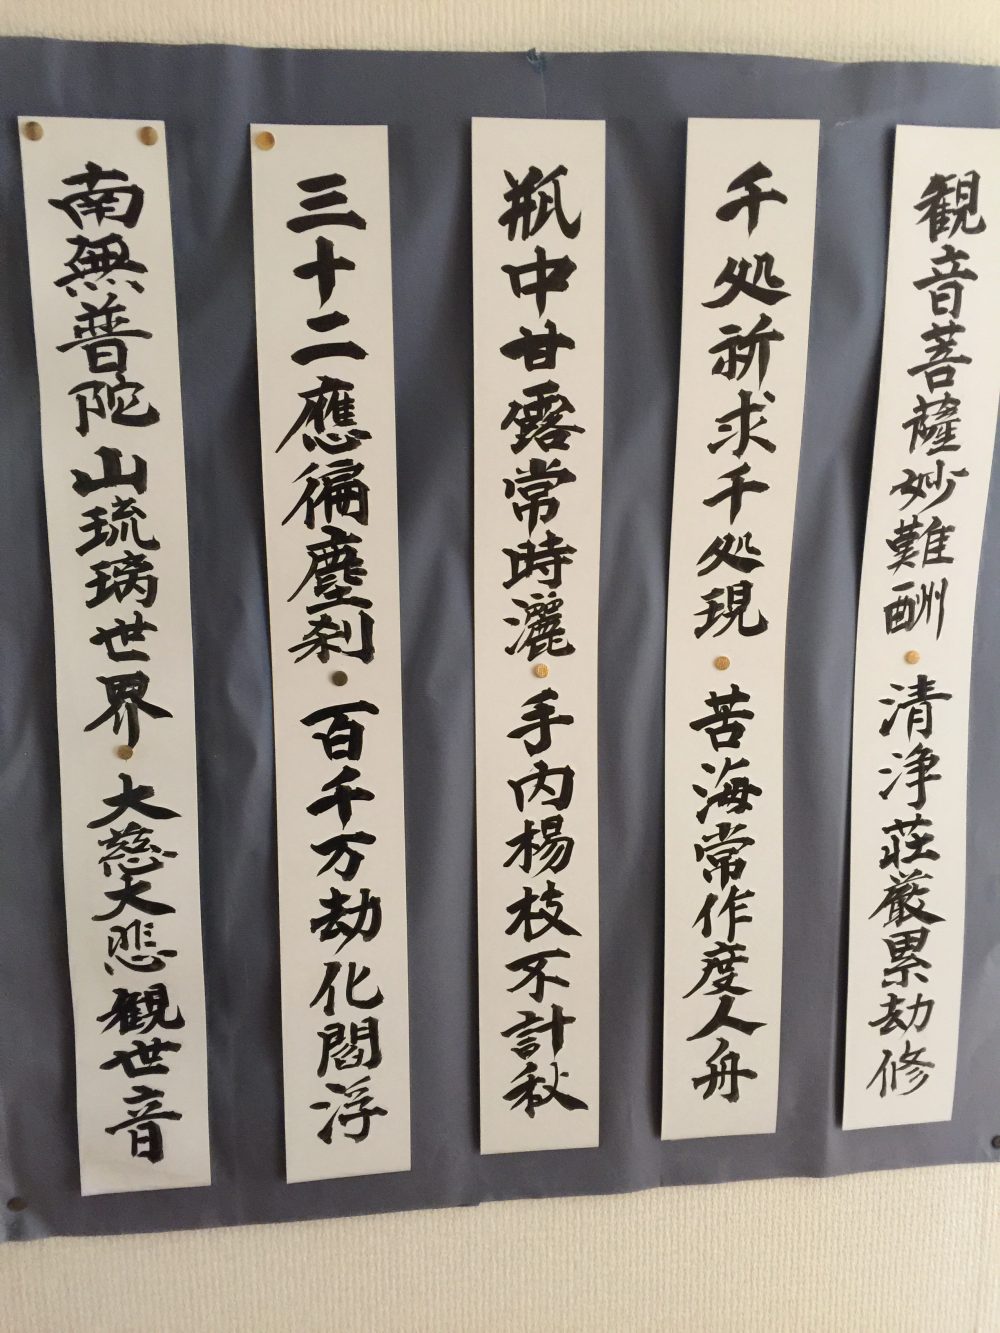 観音菩薩妙難酬・清浄荘厳累劫修
千処祈求千処現・苦海常作度人舟
瓶中甘露常時灑・手内楊枝不計秋
三十二應徧塵刹・百千万劫化閻浮
南無普陀山琉璃世界・大慈大悲観世音